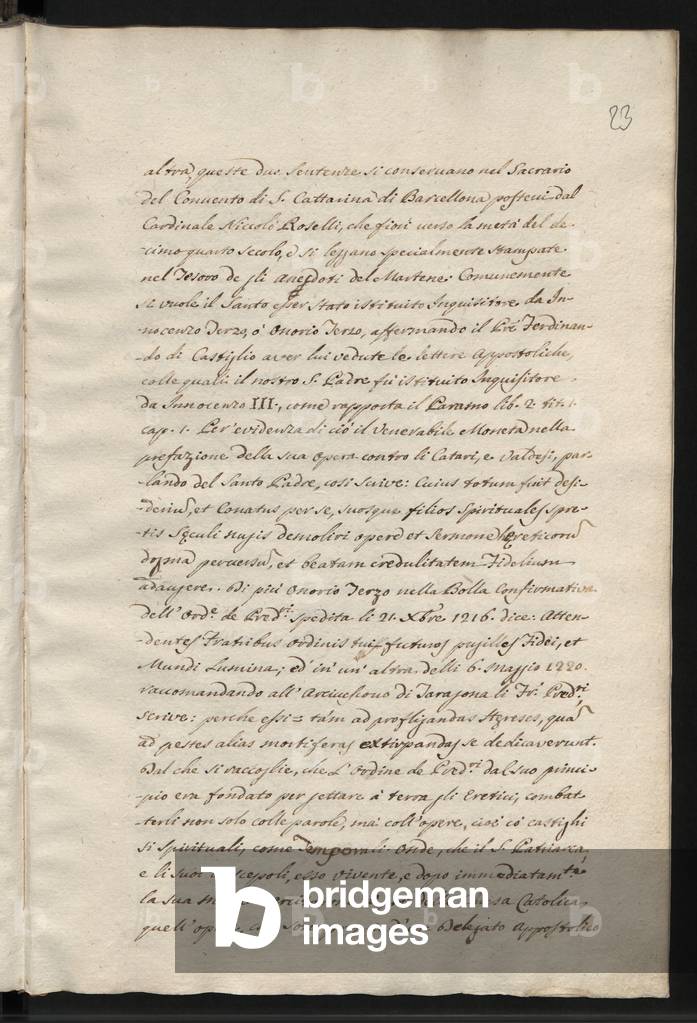 23
altra, queste due Sentenze si conservano nel Sacrario
del Convento di S. Cattarina di Barcellona postevi dal
Cardinale Niccolò Roselli, che fiorì verso la metà del de-
-cimo quarto Secolo, e si leggano specialmente stampate
nel Tesoro de gli Anecdoti del Martene. Comunemente
si vuole il Santo esser stato istituito Inquisitore da In-
-nocenzo Terzo, o' Onorio Terzo, affermando il Prē Ferdinan-
-do di Castiglio aver lui vedute le lettere Appostoliche,
colle quali il nostro S. Padre fù istituito Inquisitore
da Innocenzo III., come rapporta il Paramo lib. 2. tit. 1.
cap. 1. Per evidenza di ciò il Venerabile Moneta nella
prefazione della sua Opera contro li Catari, e Valdesi, par-
-lando del Santo Padre, così scive: Cuius totum fuit desi-
-deriū, et Conatus per se, suosque filios Spirituales spre-
-tis Sęculi nugis demoliri opere et Sermone hęreticorū
dogma perversū, et beatam credulitatem Fidelium
adaugere. Di più Onorio Terzo nella Bolla Confirmativa
dell' Ord.e de Pred.ri spedita li 21. Xbre 1216. dice: Atten-
-dentes Fratribus Ordinis tui futuros pugilles Fidei, et
Mundi Lumina; ed in un' altra delli 6. Maggio 1220.
raccomandando all' Arcivescovo di Taragona li Fr. Pred.ri
scrive: perche essi = tám ad profligandas Hęreses, quā
ad pestes alias mortiferas extirpandas se dedicaverunt.
Dal che si raccoglie, che L' Ordine de Pred.ri dal suo princi-
-pio era fondato per gettare à terra gli Eretici, combat-
-terli non solo colle parole, mà coll' opere, cioè co' castighi
si spirituali, come Temporali. Onde, che il S. Patriarca,
e li suoi Discepoli, esso vivente, e dopo immediatam.te
la sua Catolica,
quell' Delegato Appostolico
b bridgeman
images